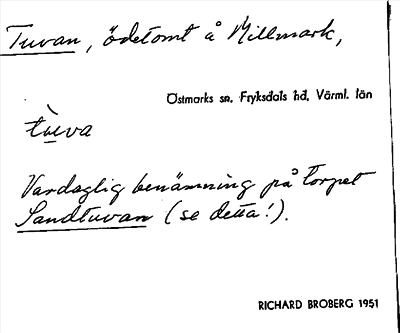 Tuvan, ödetomt å Millmark,
Östmarks sn. Fryksdals hd, Värml. län
tùva
Vardaglig benämning på torpet
Sandtuvan (se detta!).
RICHARD BROBERG 1951